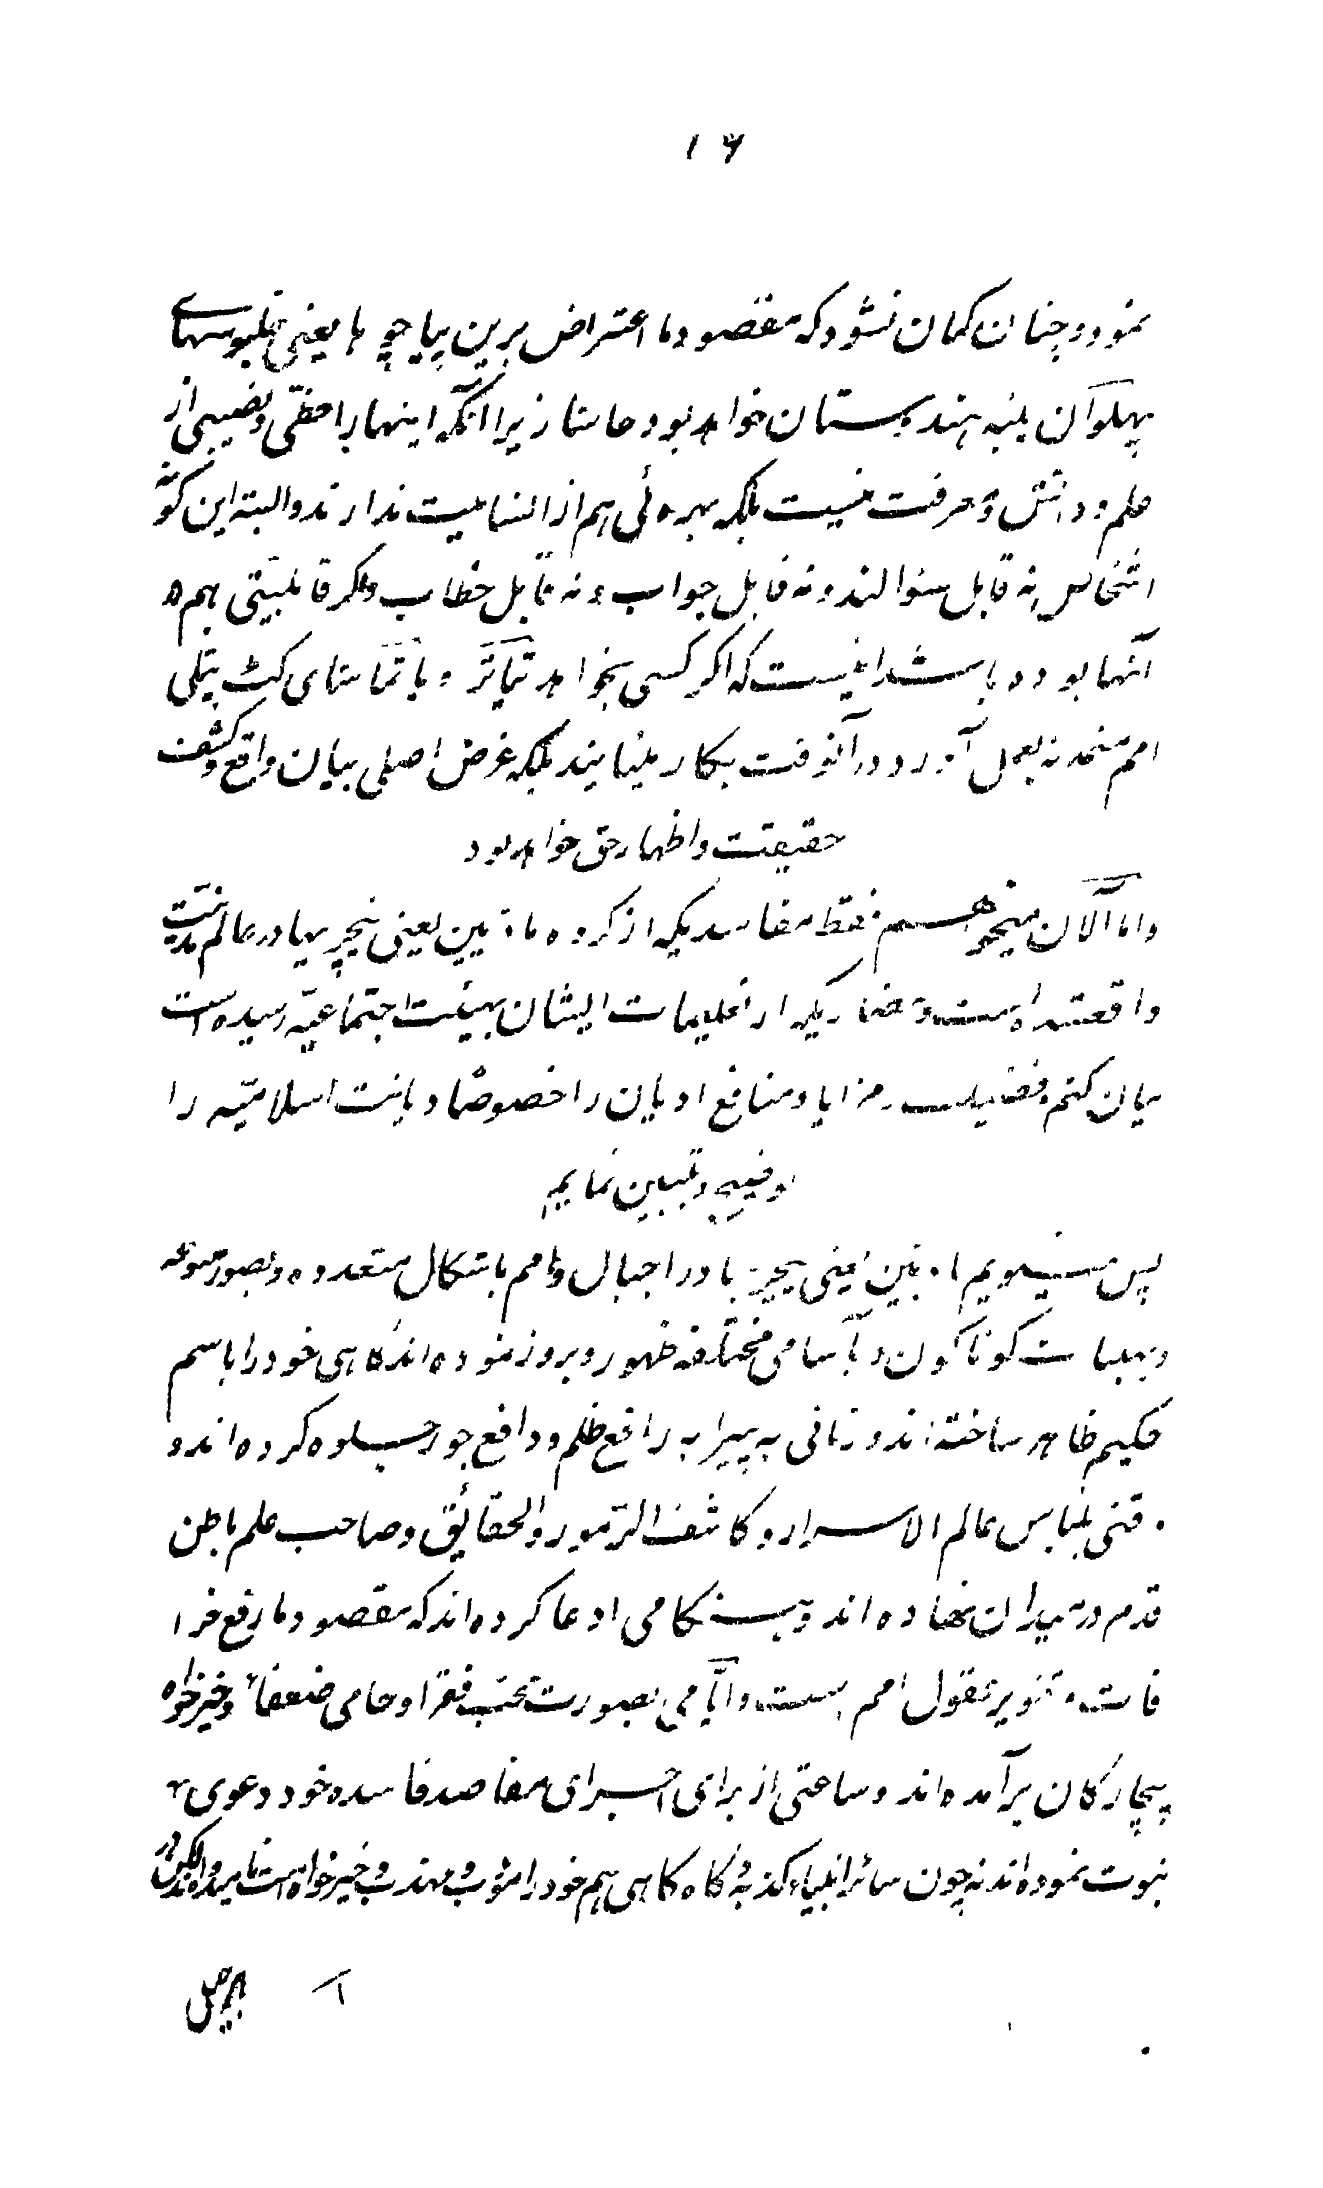 ۱۶
نمود و چنان گمان نشود که مقصود ما اعتراض برین پیاچو ها یعنی قلبوسهای
پهلوان پنبه هندوستان خواهد بود حاشا زیرا انکه اینها را حظی و نصیبی از
علم و دانش و معرفت نیست بلکه بهره ئی هم از انسانیت ندارند و البته این گونه
اشخاص نه قابل سئوالند و نه قابل جواب و نه قابل خطاب و اگر قابلیتی هم در
آنها بوده باشد اینست که اگر کسی بخواهد تیاتر و یا تماشای کٹ پتلی
امم متمدنه بعمل آورد در آنوقت بکار میایند بلکه غرض اصلی بیان واقع و کشف
حقیقت و اظهار حق خواهد بود
و اما آلان میخواهم فقط مفاسدیکه از گروه مادیین یعنی نیچریها در عالم مدنیت
واقعشده است و مضاریکه از تعلیمات ایشان بهیئت اجتماعیه رسیده است
بیان کنم و فضیلت و مزایا و منافع ادیان را خصوصا دیانت اسلامیه را
توضیح و تبیین نمایم
پس میگویم مادیین یعنی نیچریها در اجیال و امم باشکال متعدده و بصور متنوعه
و بهیات گوناگون و بآسامی مختلفه ظهور و بروز نموده اند گاهی خود را باسم
حکیم ظاهر ساخته اند و زمانی به پیرایه رافع ظلم و دافع جور جلوه کرده اند و
وقتی بلباس عالم الاسرار و کاشف الرموز والحقائق و صاحب علم باطن
قدم در میدان نهاده اند و هنگامی ادعا کرده اند که مقصود ما رفع خرا
فات و تنویر عقول امم است و ایامی بصورت محب فقرا و حامی ضعفاء و خیرخواه
بیچارگان برآمده اند و ساعتی از برای اجرای مقاصد فاسده خود دعوی
نبوت نموده اند نه چون سائر انبیاء کذبه و گاه گاهی هم خود را مؤدب و مهذب و خیرخواه امت نامیده اند و لیکن در